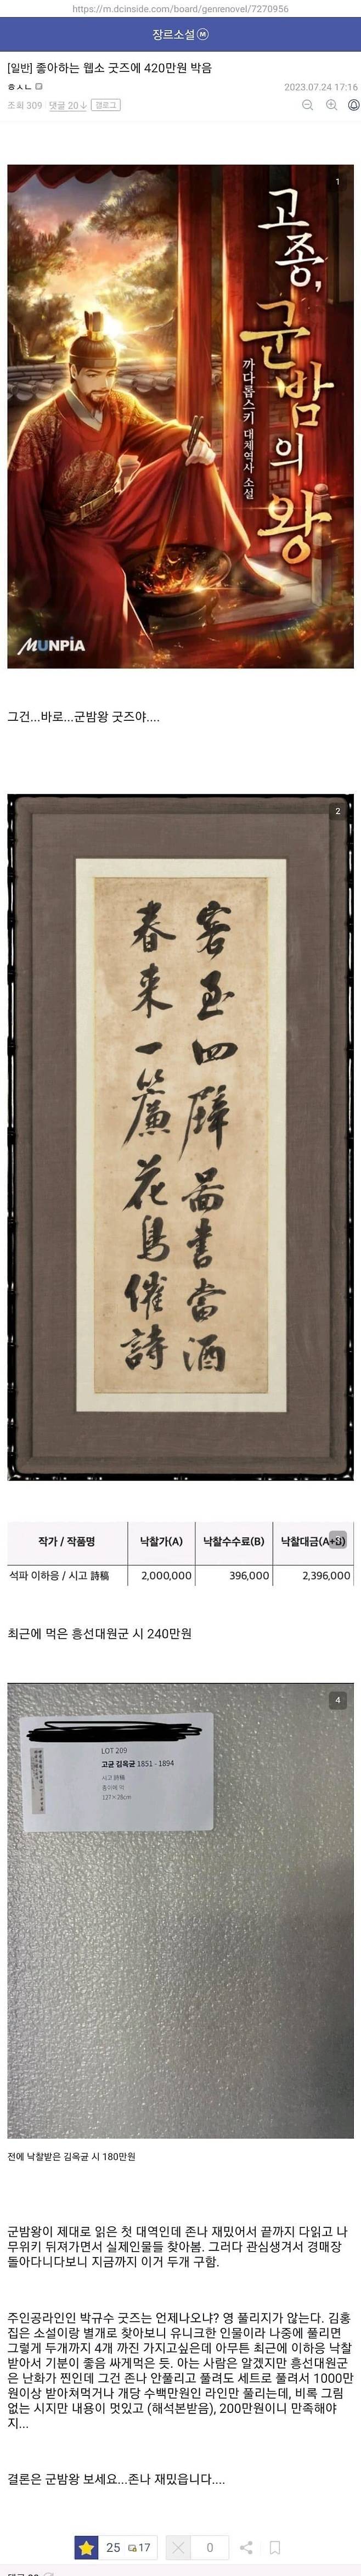 https://m.dcinside.com/board/genrenovel/7270956
장르소설 M
[일반] 좋아하는 웹소 굿즈에 420만원 박음
ㅎㅅㄴ
2023.07.24 17:16
조회 309 댓글 20↓ 갤로그
1
고종,
군밤의
왕
까다롭스키 대체역사 소설
MUNPIA
그건...바로...군밤왕 굿즈야....
2
客至四壁図書當酒
春来一簾花鳥催詩
작가 / 작품명 낙찰가(A) 낙찰수수료(B) 낙찰대금(A+B)
석파 이하응 / 시고 詩稿 2,000,000 396,000 2,396,000
최근에 먹은 흥선대원군 시 240만원
4
LOT 209
고균 김옥균 1851 - 1894
시고 詩稿
종이에 먹
127×26cm
전에 낙찰받은 김옥균 시 180만원
군밤왕이 제대로 읽은 첫 대역인데 존나 재밌어서 끝까지 다읽고 나
무위키 뒤져가면서 실제인물들 찾아봄. 그러다 관심생겨서 경매장
돌아다니다보니 지금까지 이거 두개 구함.
주인공라인인 박규수 굿즈는 언제나오냐? 영 풀리지가 않는다. 김홍
집은 소설이랑 별개로 찾아보니 유니크한 인물이라 나중에 풀리면
그렇게 두개까지 4개 까진 가지고싶은데 아무튼 최근에 이하응 낙찰
받아서 기분이 좋음 싸게먹은 듯. 아는 사람은 알겠지만 흥선대원군
은 난화가 찐인데 그건 존나 안풀리고 풀려도 세트로 풀려서 1000만
원이상 받아쳐먹거나 개당 수백만원인 라인만 풀리는데, 비록 그림
없는 시지만 내용이 멋있고 (해석본받음), 200만원이니 만족해야
지...
결론은 군밤왕 보세요...존나 재밌읍니다....
25 17 0